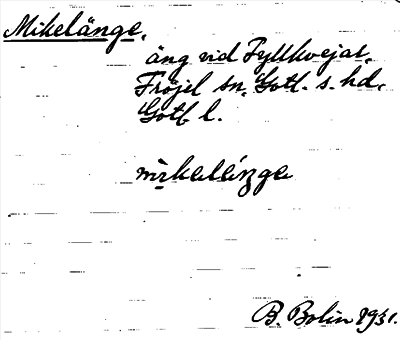 Mikelänge,
äng vid Fyllkvejar,
Fröjel sn, Gotl. s. hd,
Gotl l.
B. Bolin 1931.